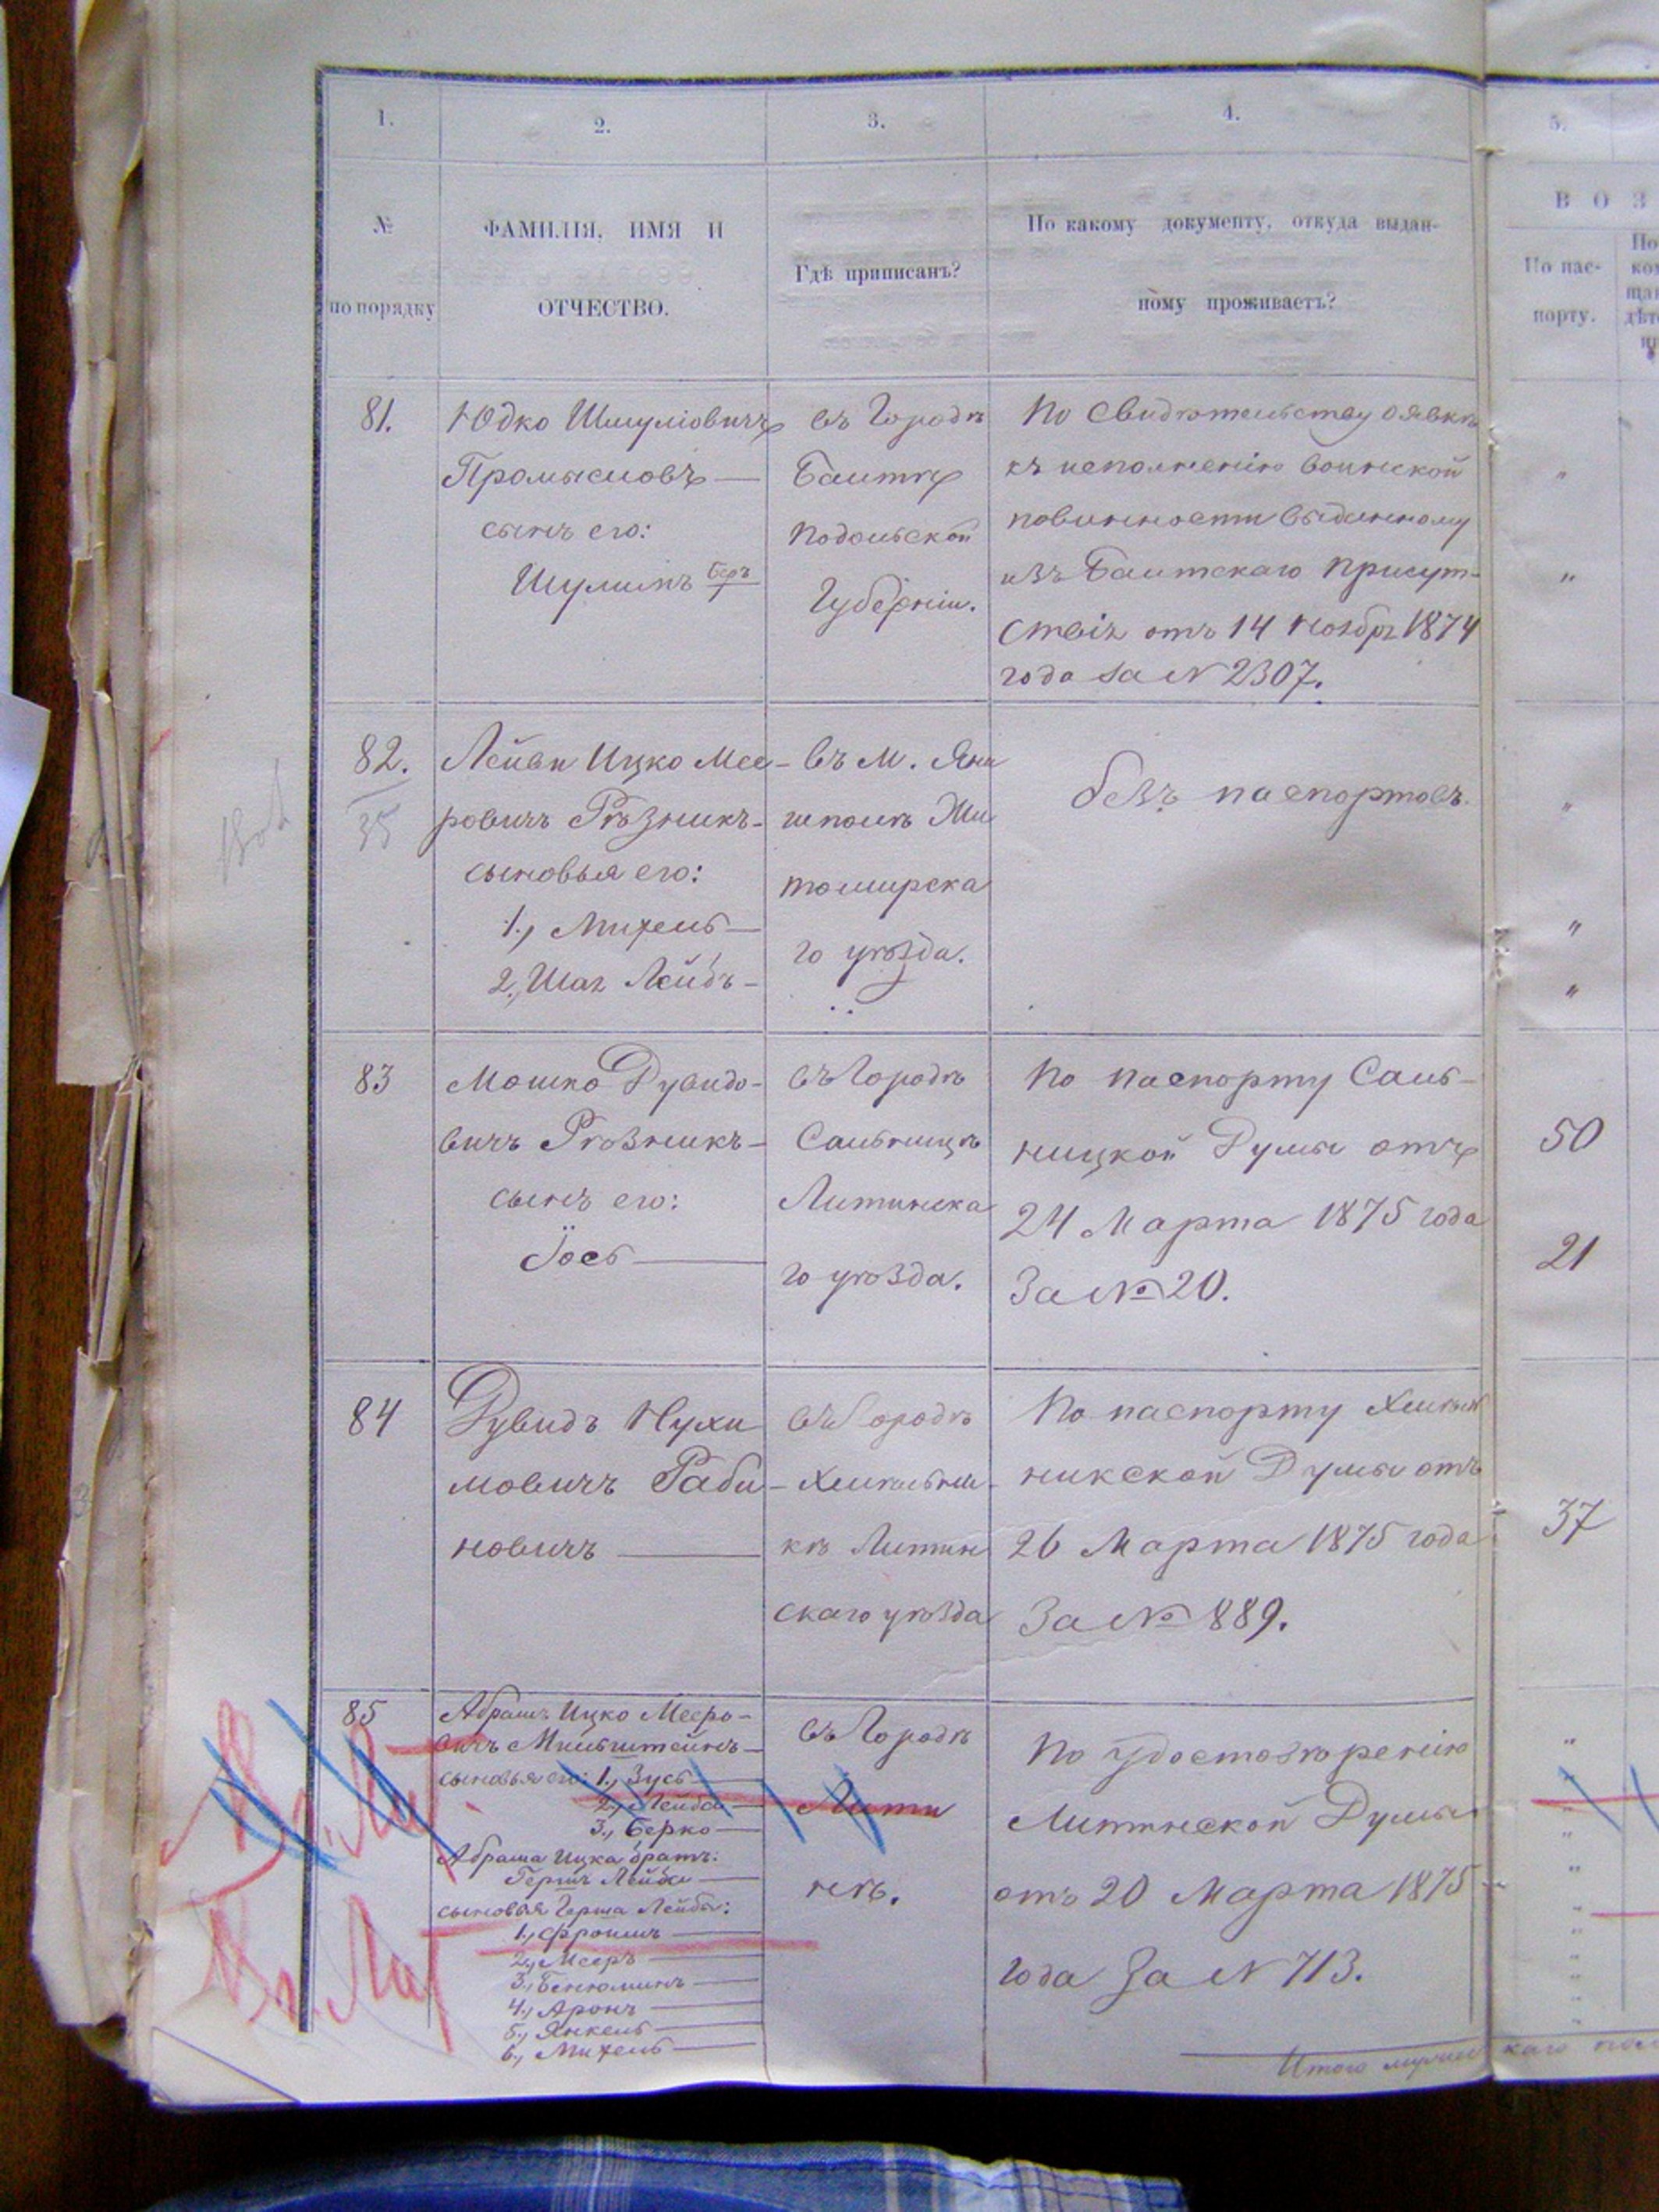 1.
2.
3.
4.
5.
№
по порядку
ФАМИЛІЯ, ИМЯ И
ОТЧЕСТВО.
Гдѣ приписанъ?
По какому документу, откуда выдан-
ному проживаетъ?
В О З
По пас-
порту.
81.
Юдко Шмуліовичъ
Промысловъ —
сынъ его:
Шулимъ Беръ
въ Городѣ
Балтѣ
Подольской
Губерніи.
По Свидѣтельству о явкѣ
къ исполненію воинской
повинности выданному
изъ Балтскаго Присут-
ствія отъ 14 Ноября 1874
года за N 2307.
82.
35
Лейви Ицко Мее-
ровичъ Рѣзникъ-
сыновья его:
1., Михель —
2., Шая Лейбъ -
въ м. Яну
шполѣ Жи
томирска
го уѣзда.
безъ паспортовъ.
83
Мошко Дувидо-
вичъ Рѣзникъ-
сынъ его:
Іось —
въ Городѣ
Сальницѣ
Литинска
го уѣзда.
По паспорту Саль-
ницкой Думы отъ
24 Марта 1875 года
За № 20.
50
21
84
Дувидъ Нухи
мовичъ Раби-
новичъ —
въ Городѣ
Хмѣльни-
кѣ Литин
скаго уѣзда
По паспорту Хмѣль
никской Думы отъ
26 Марта 1875 года
За № 889.
37
85
Абрамъ Ицко Мееро-
вичъ Мильштейнъ —
сыновья его: 1., Зусь —
2., Лейба —
3., Берко —
Абрама Ицка братъ:
Гершъ Лейба —
сыновья Герша Лейбы:
1., Фроимъ —
2., Мееръ —
3., Бенюминъ —
4., Аронъ —
5., Янкель —
6., Михель —
въ Городѣ
Лити
нѣ.
По удостовѣренію
Литинской Думы
отъ 20 Марта 1875
года За N 713.
Итого